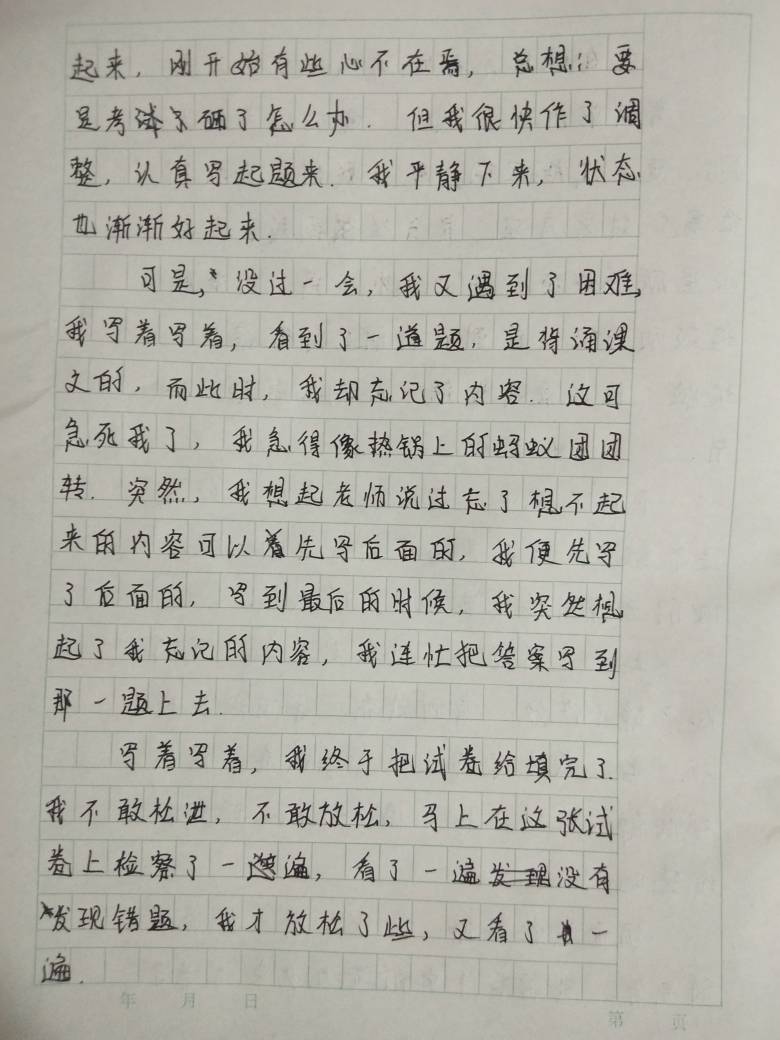 起来，刚开始有些心不在焉，总想：要
是考试考砸了怎么办．但我很快作了调
整，认真写起题来．我平静下来，状态
也渐渐好起来．
可是，没过一会，我又遇到了困难，
我写着写着，看到了一道题，是背诵课
文的，而此时，我却忘记了内容．这可
急死我了，我急得像热锅上的蚂蚁团团
转．突然，我想起老师说过忘了想不起
来的内容可以先写后面的，我便先写
了后面的，写到最后的时候，我突然想
起了我忘记的内容，我连忙把答案写到
那一题上去．
写着写着，我终于把试卷给填完了．
我不敢松泄，不敢放松，马上在这张试
卷上检察了一遍，看了一遍没有
发现错题，我才放松了些，又看了一
遍．
年 月 日
第 页